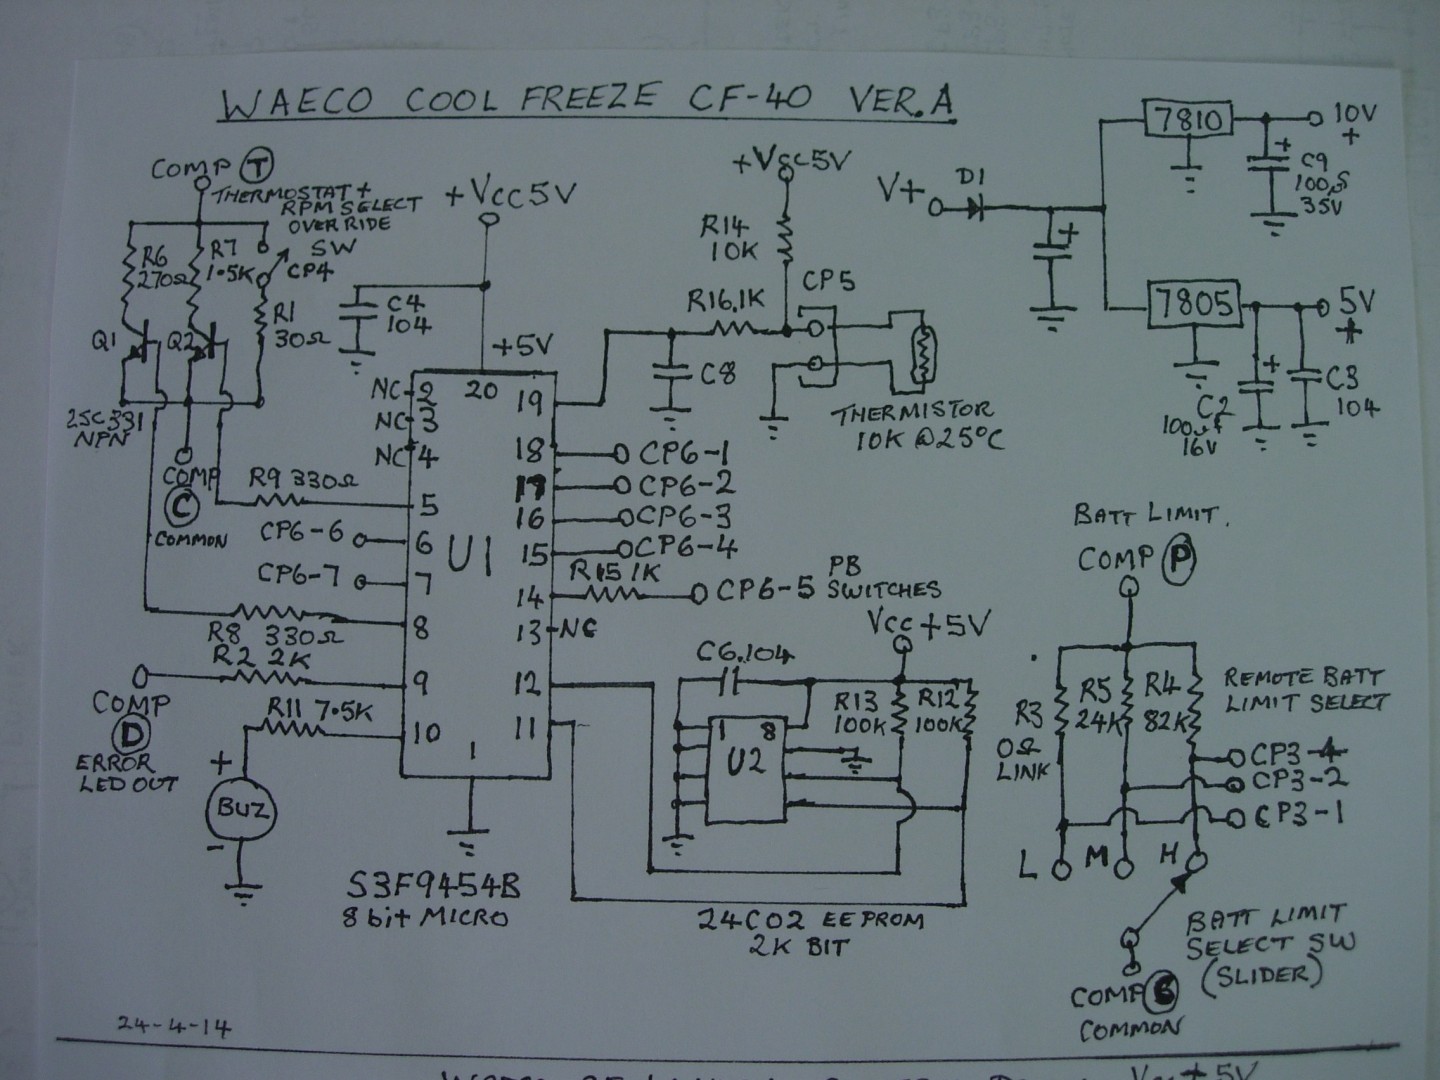 WAECO COOL FREEZE CF-40 VER.A
COMP T
THERMOSTAT +
RPM SELECT
OVERRIDE
SW
CP4
R6
270Ω
R7
1.5K
R1
30Ω
Q1
Q2
2SC331
NPN
COMP
C
COMMON
+Vcc5V
C4
104
+5V
NC 2
NC 3
NC 4
20
19
18
17
16
15
14
13 NC
12
11
5
6
7
8
9
10
1
U1
R9 330Ω
CP6-6
CP6-7
R8 330Ω
R2 2K
COMP
D
ERROR
LED OUT
R11 7.5K
+
BUZ
-
S3F9454B
8 bit MICRO
+Vcc5V
R14
10K
R16.1K
CP5
C8
THERMISTOR
10K @25°C
CP6-1
CP6-2
CP6-3
CP6-4
R15 1K
CP6-5
PB
SWITCHES
Vcc +5V
C6.104
R13
100K
R12
100K
1 8
U2
24C02 EEPROM
2K BIT
V+
D1
+
7810
10V
+
+
C9
100
35V
7805
5V
+
+
C2
100
16V
C3
104
BATT LIMIT.
COMP P
R3
0Ω
LINK
R5
24K
R4
82K
REMOTE BATT
LIMIT SELECT
CP3-4
CP3-2
CP3-1
L M H
BATT LIMIT
SELECT SW
(SLIDER)
COMP
COMMON
24-4-14